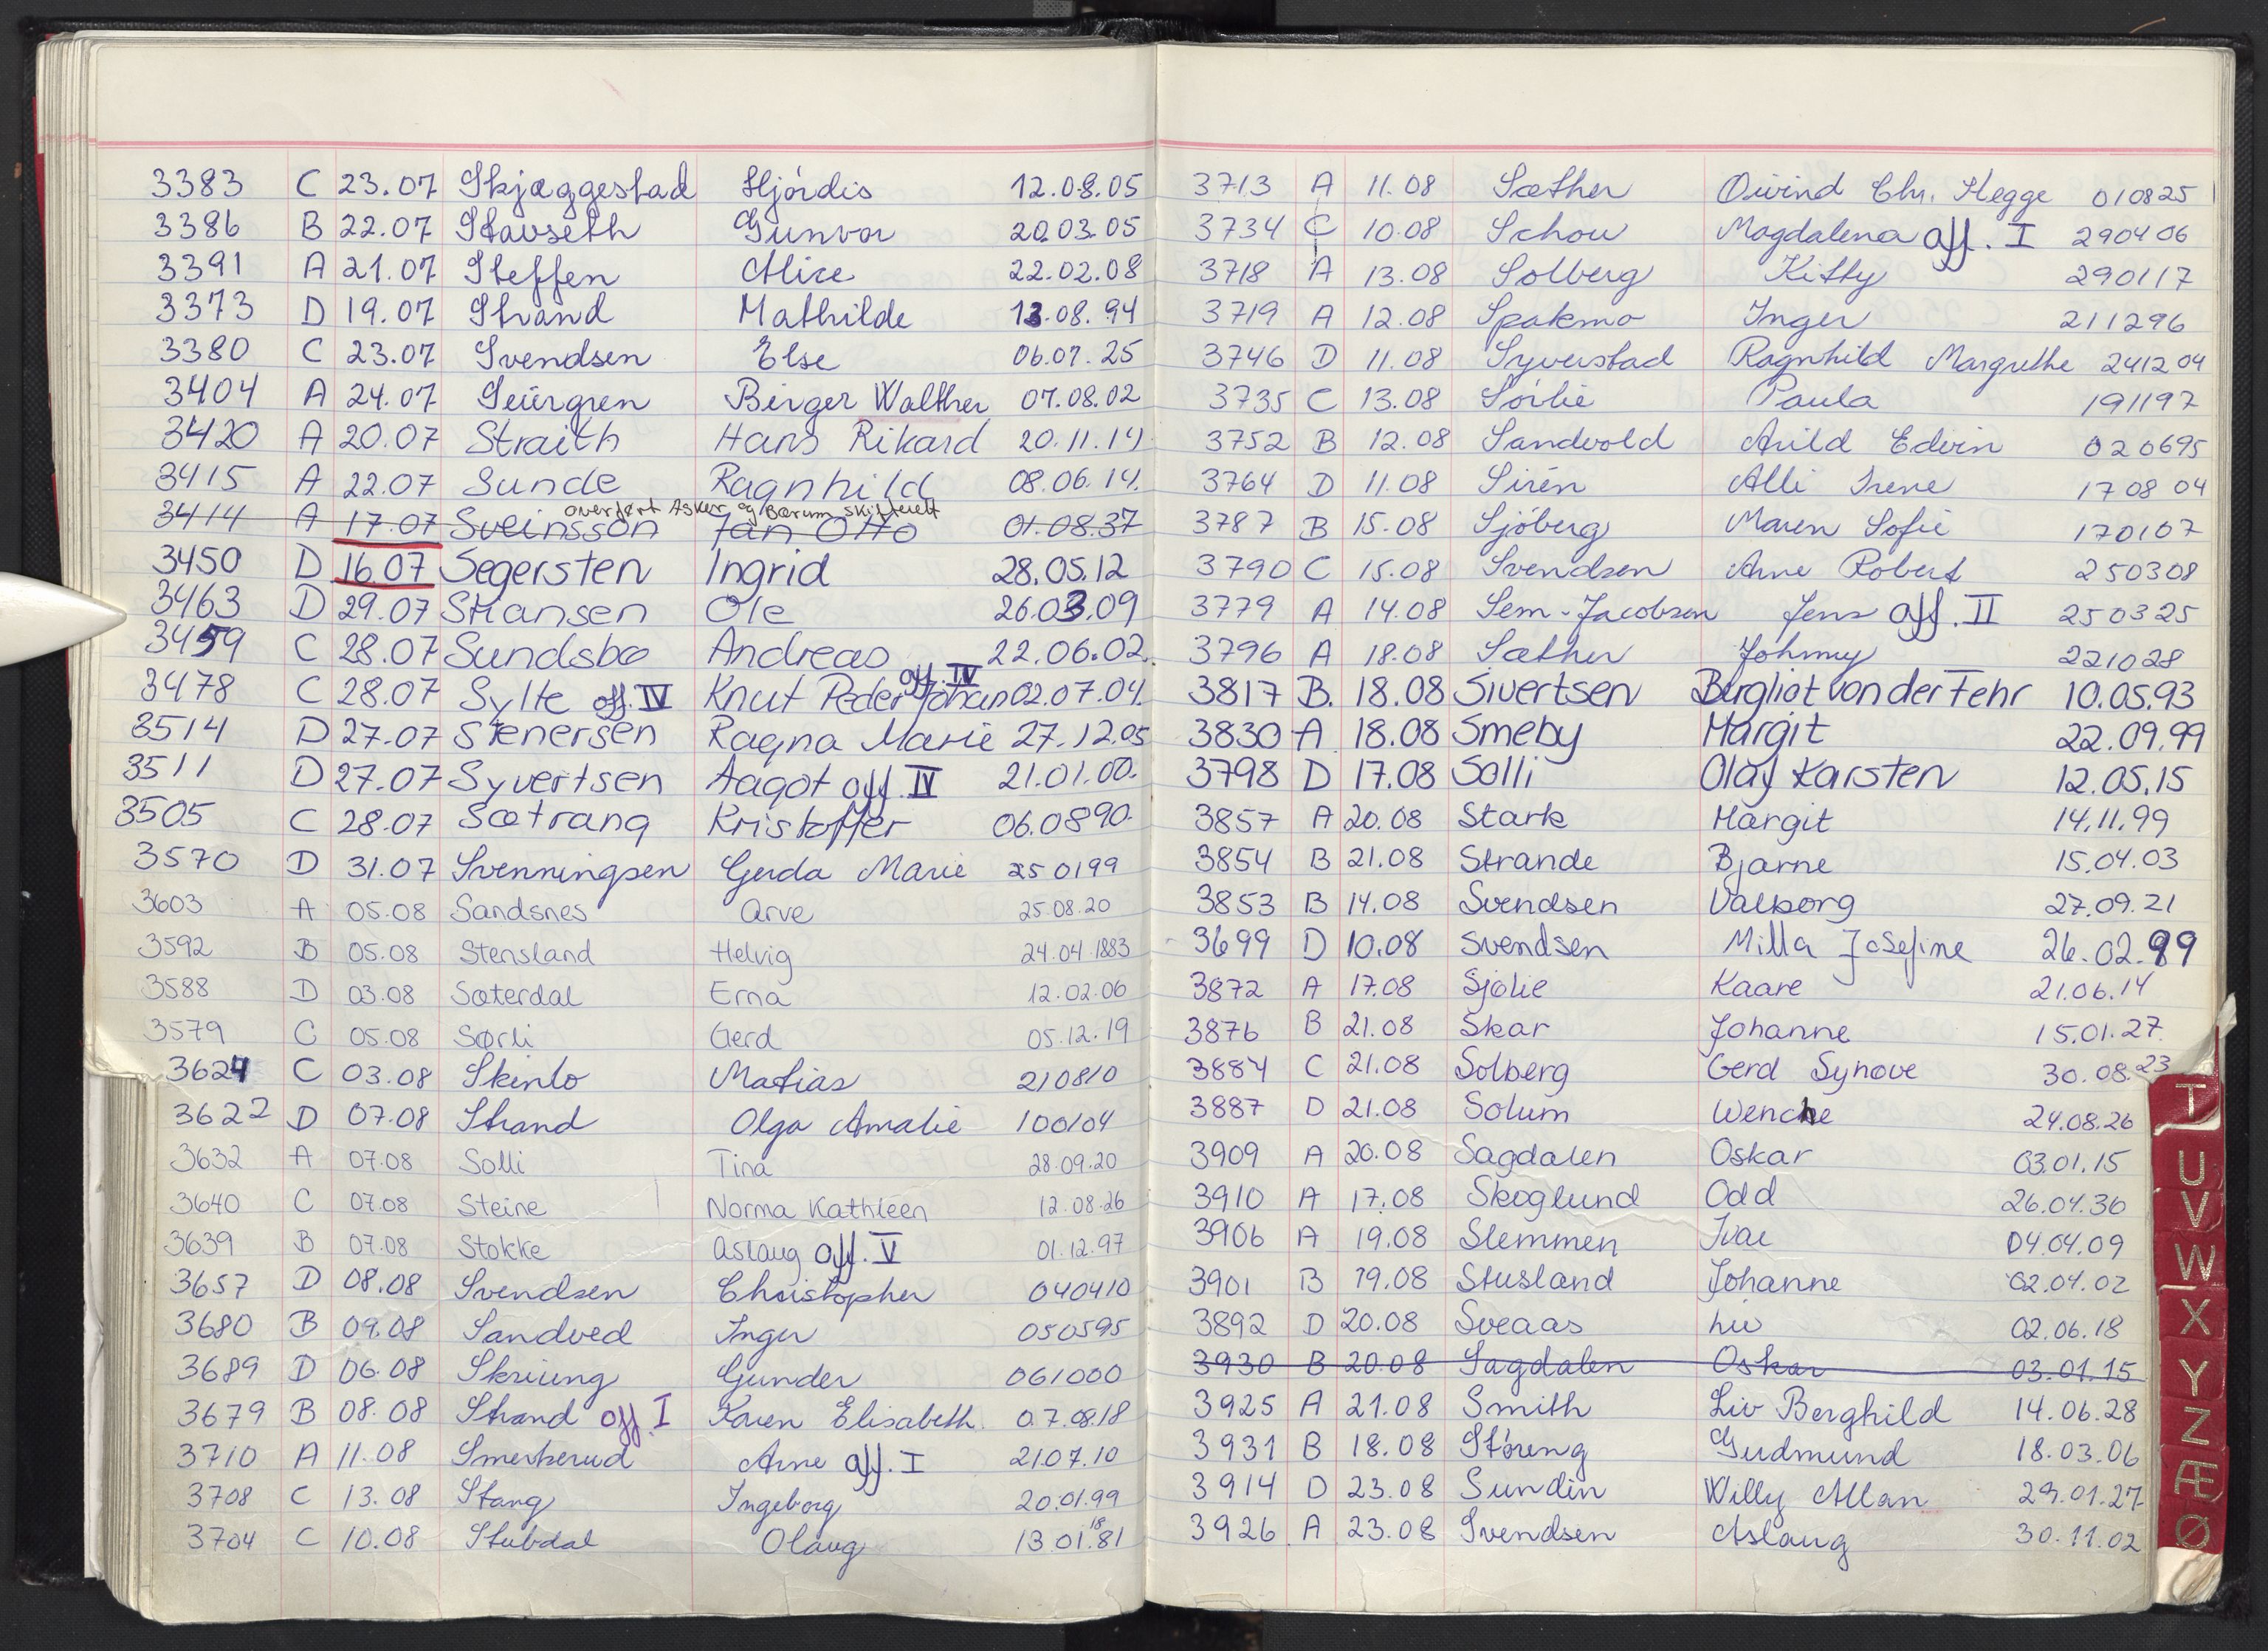 3383 C 23.07 Skjæggestad Hjórdis 12.08.05
3386 B 22.07 Stavseth Gunvor 20.03.05
3391 A 21.07 Steffen Alice 22.02.08
3373 D 19.07 Strand Mathilde 13.08.94
3380 C 23.07 Svendsen Else 06.07.25
3404 A 24.07 Birger Walther 07.08.02
3420 A 20.07 Straith Hans Rikard 20.11.14
3415 A 22.07 Sunde Ragnhild 08.06.14.
overført Asker og Bærum skifterett
3414 A 17.07 Sveinsson Jan Otto 01.08.37
3450 D 16.07 Segersten Ingrid 28.05.12
3463 D 29.07 Ole 26.03.09
3459 C 28.07 Sundsbø Andreas 22.06.02.
3478 C 28.07 Sylte off. IV Knut Peder Johan off. IV 02.07.04.
3514 D 27.07 Stenersen Ragna Marie 27.12.05
3511 D 27.07 Syvertsen Aagot off. IV 21.01.00.
3505 C 28.07 Sætrang Kristoffer 06.0890.
3570 D 31.07 Svenningsen Gerda Marie 250199
3603 A 05.08 Sandsnes Arve 25.08.20
3592 B 05.08 Stensland Helvig 24.04.1883
3588 D 03.08 Sæterdal Erna 12.02.06
3579 C 05.08 Sørli Gerd 05.12.19
3624 C 03.08 Skinlo Matias 210810
3622 D 07.08 Strand Olga Amalie 100104
3632 A 07.08 Solli Tina 28.09.20
3640 C 07.08 Steine Norma Kathleen 12.08.26
3639 B 07.08 Stokke Aslaug off. V 01.12.97
3657 D 08.08 Svendsen Christopher 040410
3680 B 09.08 Sandved Inger 050595
3689 D 06.08 Gunder 061000
3679 B 08.08 Strand off. I Karen Elisabeth. 07.08.18
3710 A 11.08 Smerkerud Arne off. I 21.07.10
3708 C 13.08 Stang Ingeborg 20.01.99
3704 C 10.08 Stubdal Olaug 13.01.1881
3713 A 11.08 Sæther Øivind Chr. Hegge 010825
3734 C 10.08 Schou Magdalena off. I 290406
3718 A 13.08 Solberg Kitty 290117
3719 A 12.08 Spakmo Inger 211296
3746 D 11.08 Syverstad Ragnhild Margrethe 241204
3735 C 13.08 Sórlie Paula 191197
3752 B 12.08 Sandvold Arild Edvin 020695
3764 D 11.08 Sirén Alli Irene 170804
3787 B 15.08 Sjóberg Maren Sofie 170107
3790 C 15.08 Svendsen Arne Robert 250308
3779 A 14.08 Sem-Jacobsen Jens off. II 250325
3796 A 18.08 Sæther Johnny 221028
3817 B. 18.08 Sivertsen Bergliot von der Fehr 10.05.93
3830 A 18.08 Smeby Margit 22.09.99
3798 D 17.08 Solli Olaf Karsten 12.05.15
3857 A 20.08 Stark Margit 14.11.99
3854 B 21.08 Strande Bjarne 15.04.03
3853 B 14.08 Svendsen Valborg 27.09.21
3699 D 10.08 Svendsen Milla Josefine 26.02.99
3872 A 17.08 Sjølie Kaare 21.06.14
3876 B 21.08 Skar Johanne 15.01.27.
3884 C 21.08 Solberg Gerd Synøve 30.08.23
3887 D 21.08 Solum Wenche 24.08.26
3909 A 20.08 Sagdalen Oskar 03.01.15
3910 A 17.08 Skoglund Odd 26.04.36
3906 A 19.08 Slemmen Ivar 04.04.09
3901 B 19.08 Stusland Johanne 02.04.02
3892 D 20.08 Sveaas Liv 02.06.18
3930 B 20.08 Sagdalen Oskar 03.01.15
3925 A 21.08 Smith Liv Berghild 14.06.28
3931 B 18.08 Stóreng Gudmund 18.03.06
3914 D 23.08 Sundin Willy Allan 29.01.27
3926 A 23.08 Svendsen Aslaug 30.11.02
T
U
V
W
X
Y
Z
Æ
Ø